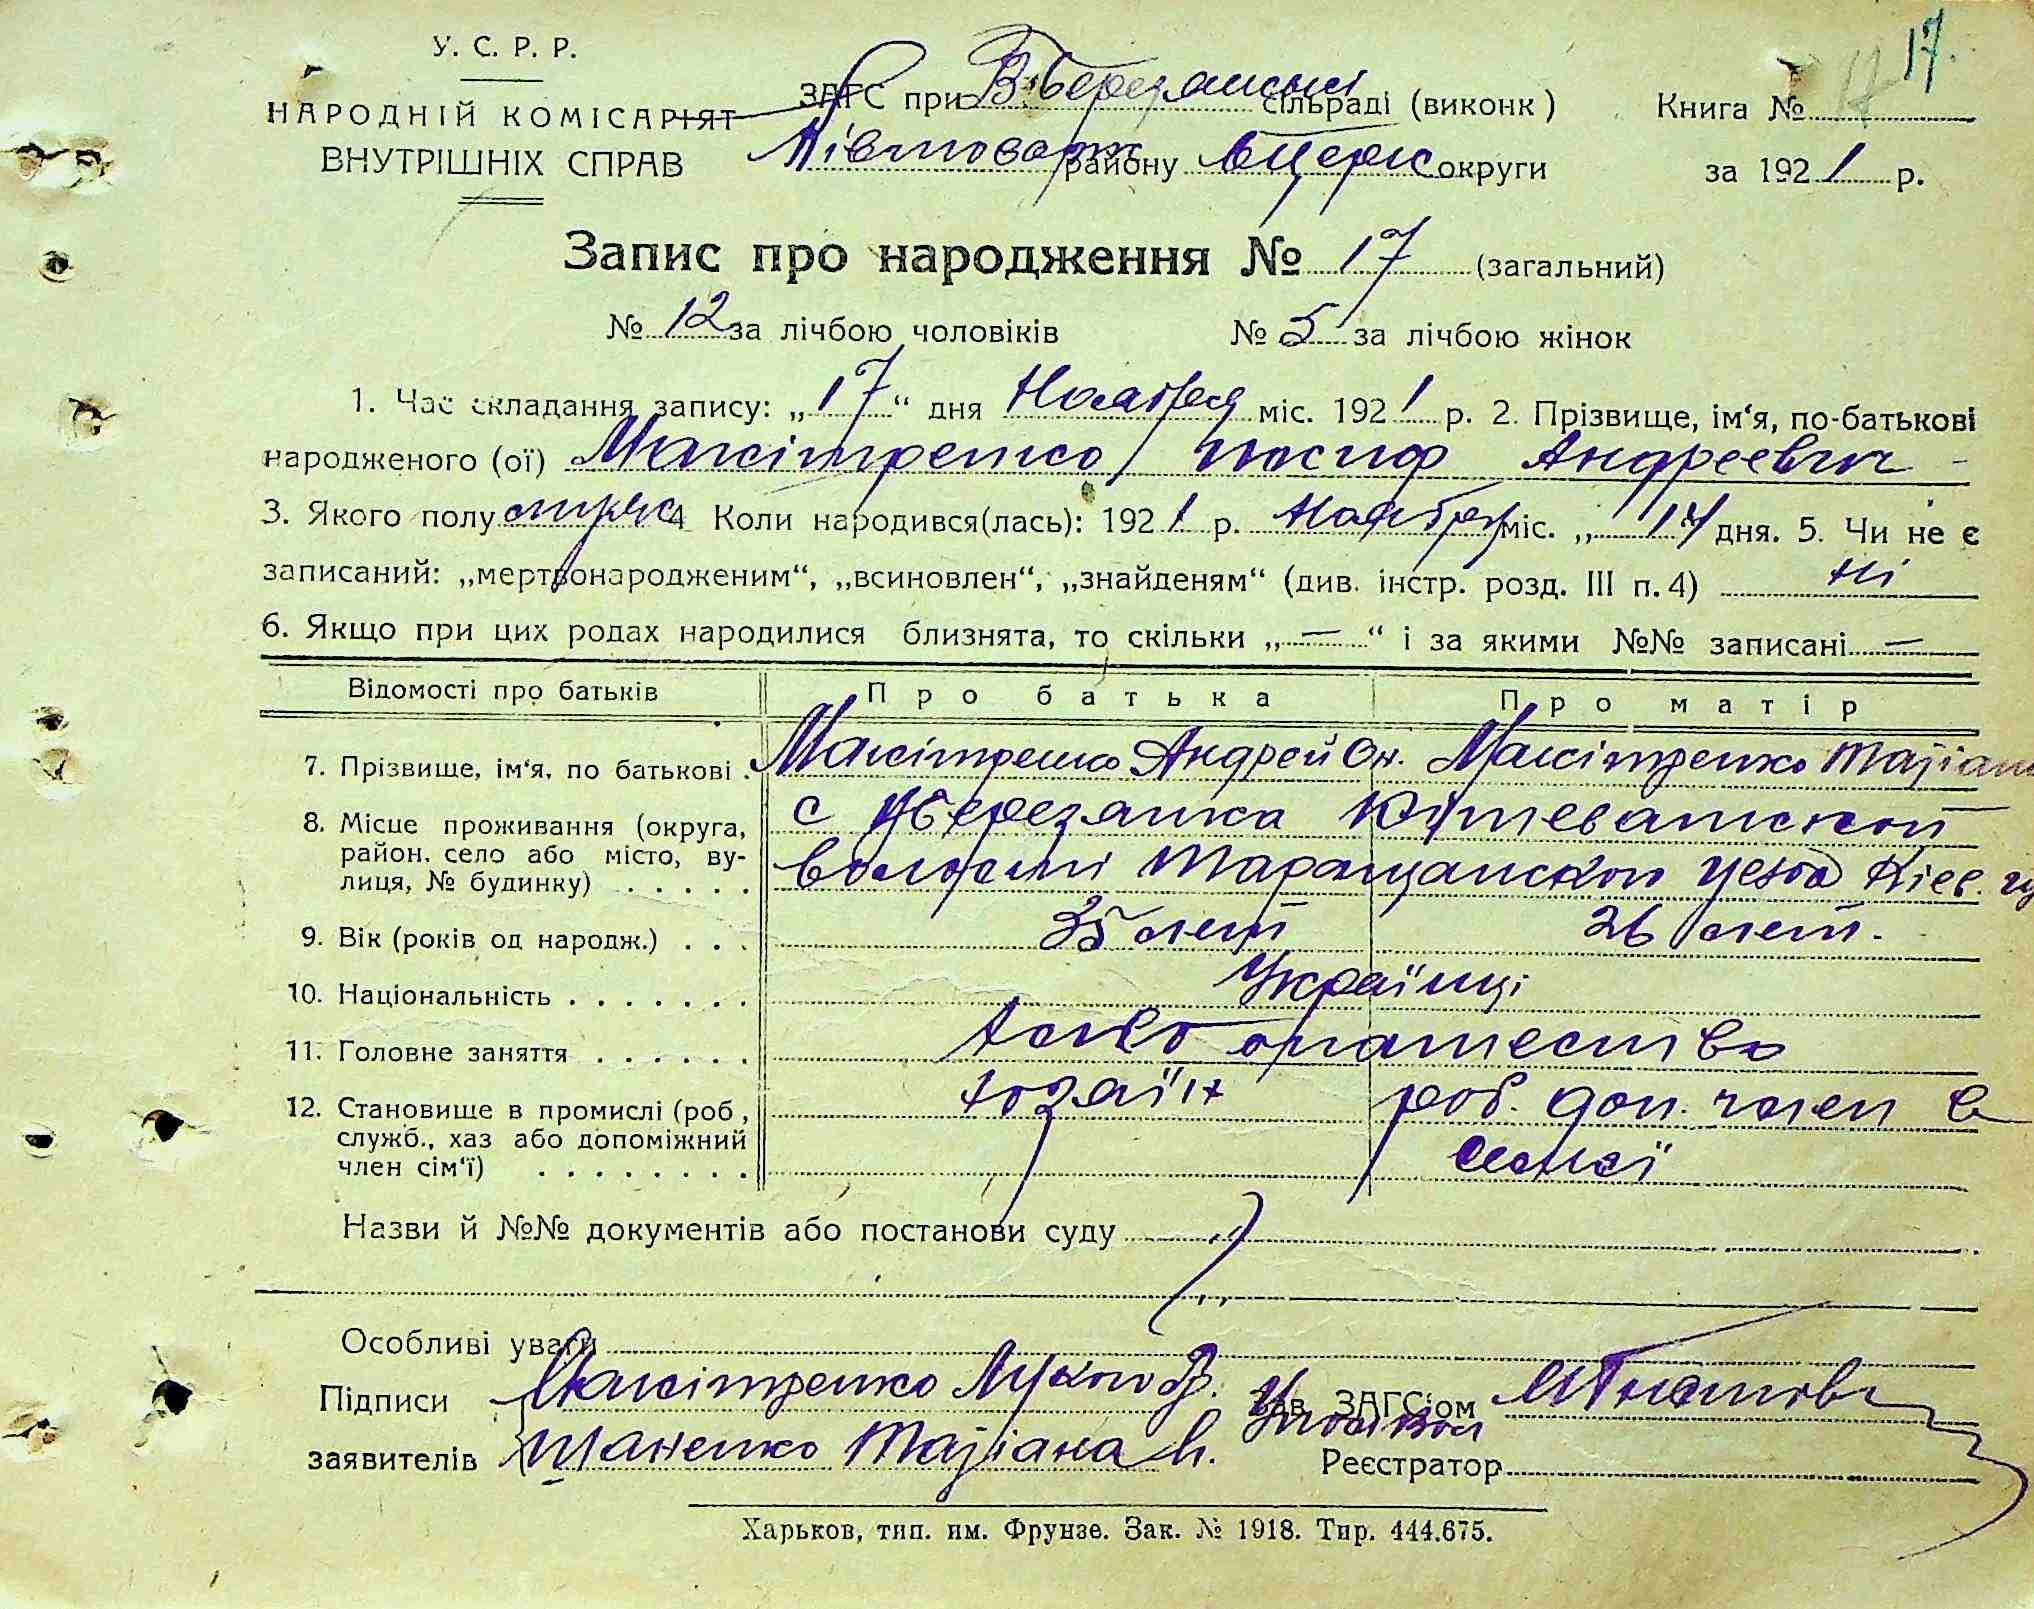 17.
У. С. Р. Р.
НАРОДНІЙ КОМІСАРІЯТ
ВНУТРІШНІХ СПРАВ
ЗАГС при В Березанські сільраді (виконк )
району БЦерк округи
Книга № 17
за 1921 р.
Запис про народження № 17 (загальний)
№ 12 за лічбою чоловіків № 5 за лічбою жінок
1. Час складання запису: „17“ дня Ноября міс. 1921 р. 2. Прізвище, ім‘я, по-батькові
народженого (ої) Максітренко Иосиф Андреевич
3. Якого полу муж 4 Коли народився(лась): 1921 р. Ноября міс. „ 14 дня. 5. Чи не є
записаний: „мертвонародженим“, „всиновлен“, „знайденям“ (див. інстр. розд. III п. 4) ні
6. Якщо при цих родах народилися близнята, то скільки „ — “ і за якими №№ записані —
Відомості про батьків Про батька Про матір
7. Прізвище, ім‘я, по батькові . Максітренко Андрей Он. Максітренко
8. Місце проживання (округа, район, село або місто, вулиця, № будинку) . . . . .
с Березанка
волості Таращанской уезда Кіев. гу
9. Вік (років од народж.) . . . 35 лет 26 лет.
10. Національність . . . . . . . Українці
11. Головне заняття . . . . . . хлебопашество
12. Становище в промислі (роб, служб., хаз або допоміжний член сім‘ї) . . . . . . . .
хозяїн роб. доп. член в
семьї
Назви й №№ документів або постанови суду
Особливі уваги
Підписи Максітренко Зав. ЗАГС‘ом
заявителів Таліана
Реєстратор
Харьков, тип. им. Фрунзе. Зак. № 1918. Тир. 444.675.